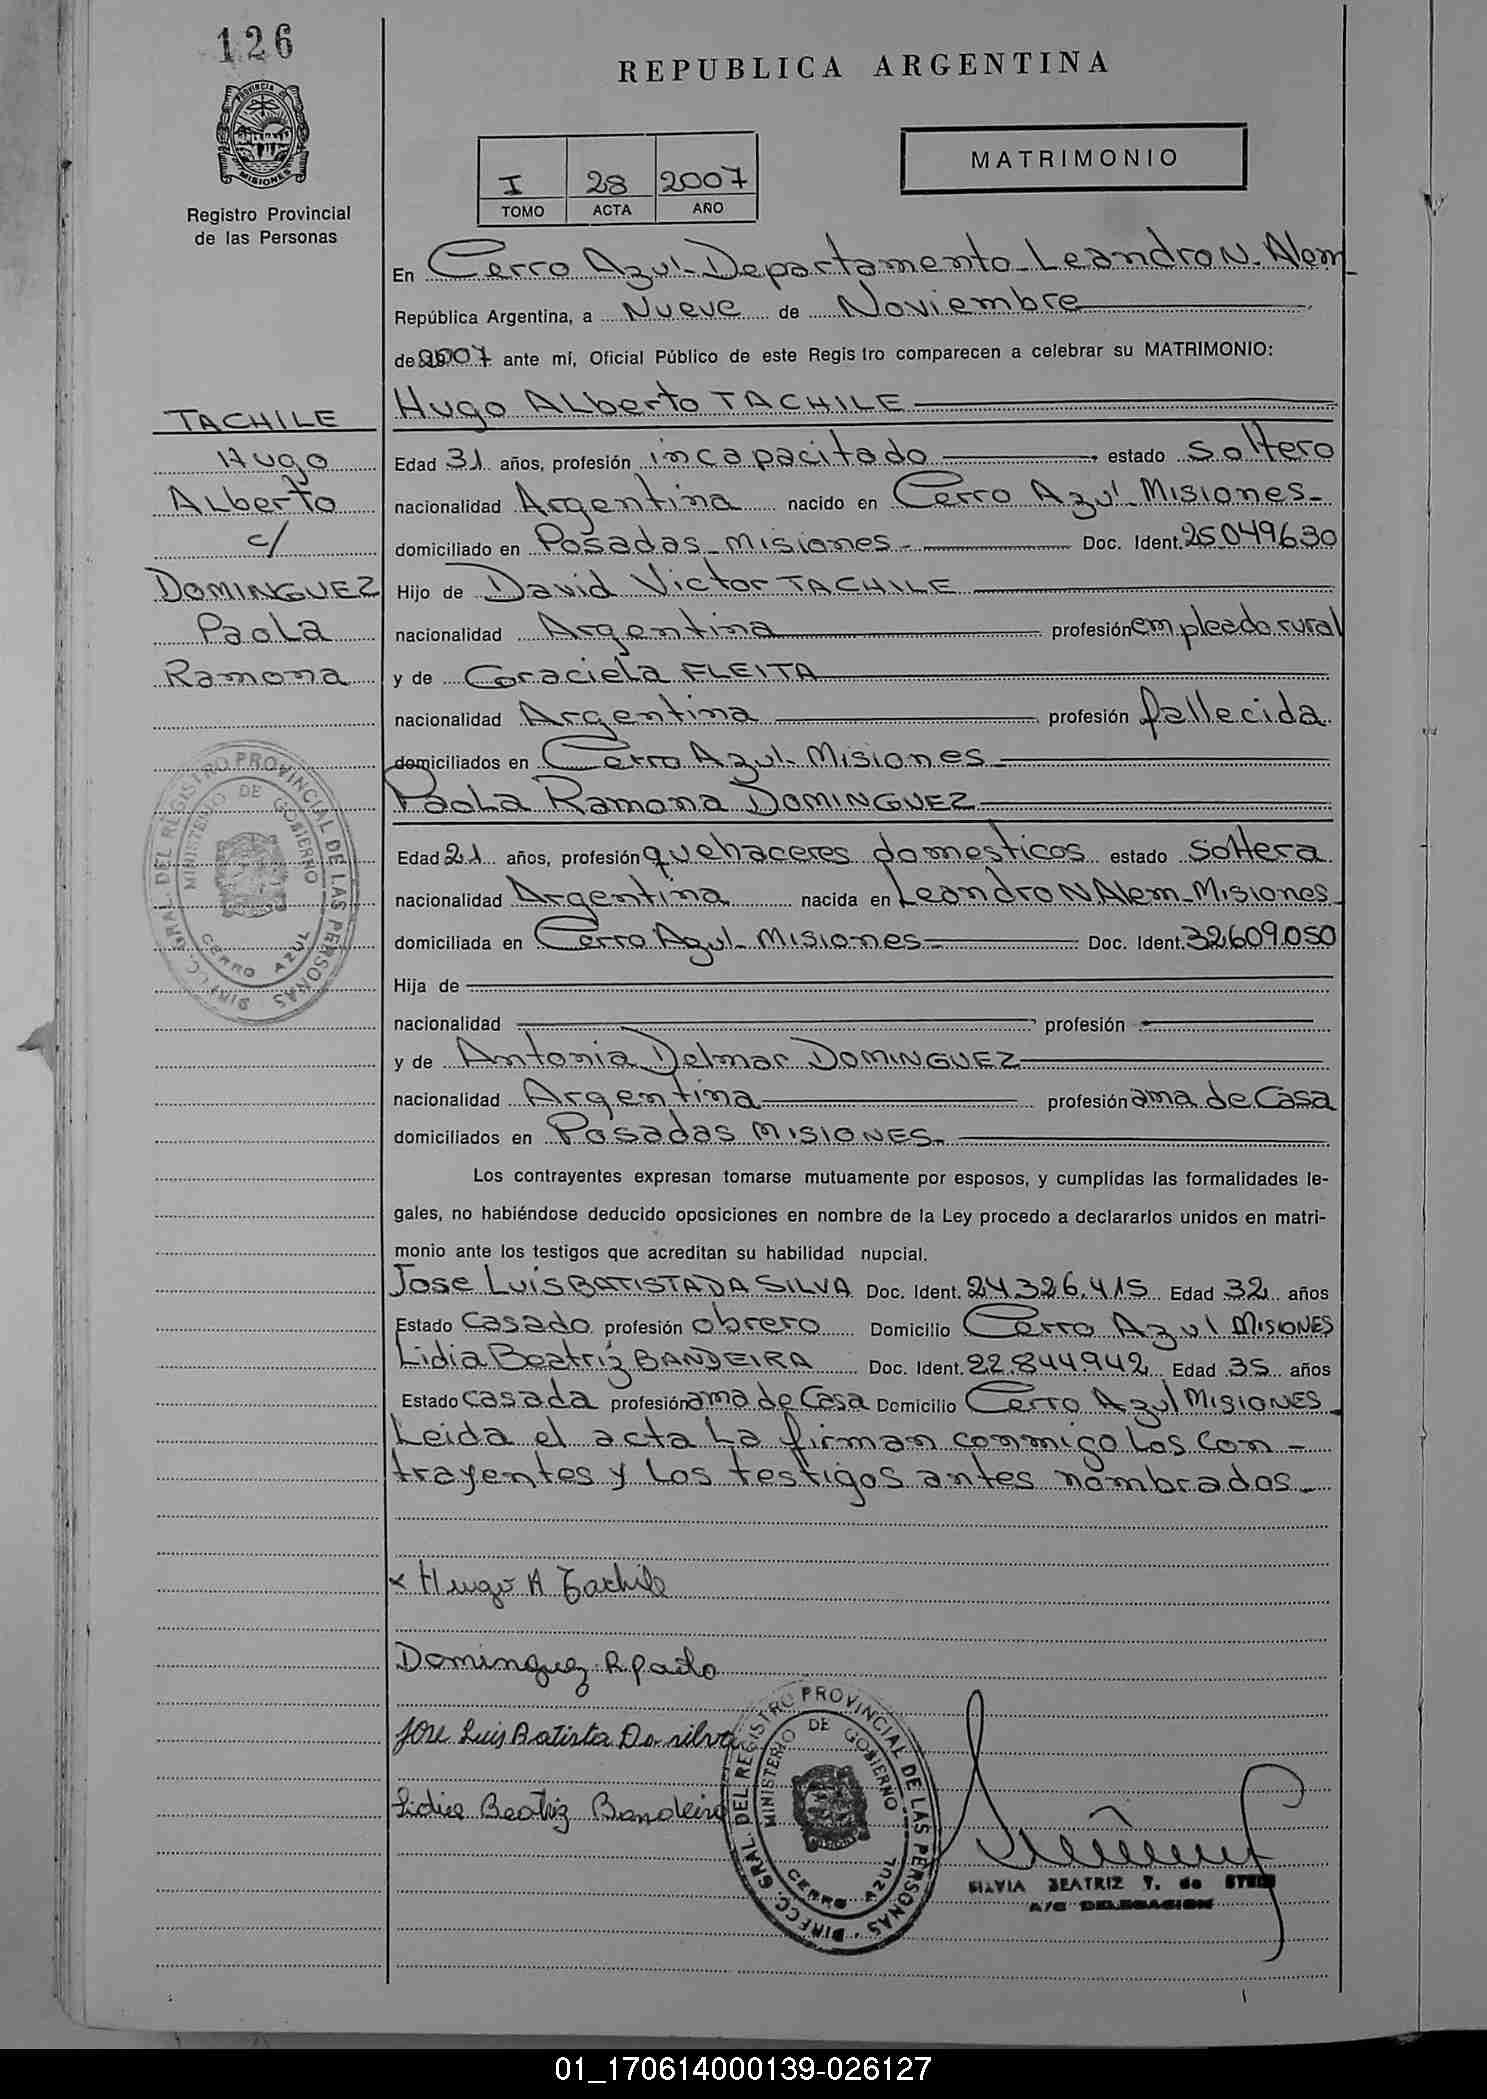 126
REPUBLICA ARGENTINA
PROVINCIA DE
MISIONES
Registro Provincial
de las Personas
I 28 2007
TOMO ACTA AÑO
MATRIMONIO
En Cerro Azul-Departamento-Leandro N. Alem
República Argentina, a Nueve de Noviembre
de 2007 ante mí, Oficial Público de este Registro comparecen a celebrar su MATRIMONIO:
Hugo ALberto TACHILE
TACHILE
Hugo
ALberto
c/
DOMINGUEZ
PaoLa
Ramona
Edad 31 años, profesión incapacitado estado soltero
nacionalidad Argentina nacido en Cerro Azul-Misiones-
domiciliado en Posadas-Misiones- Doc. Ident. 25.049.630
Hijo de David Victor TACHILE
nacionalidad Argentina profesión empleado rural
y de GracieLa FLEITA
nacionalidad Argentina profesión fallecida
domiciliados en Cerro Azul-Misiones-
PaoLa Ramona DOMINGUEZ
Edad 21 años, profesión quehaceres domesticos estado soltera
nacionalidad Argentina nacida en Leandro N. Alem-Misiones-
domiciliada en Cerro Azul-Misiones- Doc. Ident. 32.609.050
Hija de
nacionalidad profesión
y de Antonia Delmar DOMINGUEZ
nacionalidad Argentina profesión ama de Casa
domiciliados en Posadas MISIONES-
Los contrayentes expresan tomarse mutuamente por esposos, y cumplidas las formalidades le-
gales, no habiéndose deducido oposiciones en nombre de la Ley procedo a declararlos unidos en matri-
monio ante los testigos que acreditan su habilidad nupcial.
Jose Luis BATISTA DA SILVA Doc. Ident. 24.326.415 Edad 32 años
Estado Casado profesión obrero Domicilio Cerro Azul MISIONES
Lidia Beatriz BANDEIRA Doc. Ident. 22.844.942 Edad 35 años
Estado casada profesión ama de Casa Domicilio Cerro Azul MISIONES
Leida el acta La firman conmigo Los Con-
trayentes y Los testigos antes nombrados-
x Hugo A Tachile
Dominguez R Paola
Jose Luis Batista Da silva
Lidia Beatriz Bandeira
DIRECC. GRAL. DEL REGISTRO PROVINCIAL DE LAS PERSONAS
MINISTERIO DE GOBIERNO
CERRO AZUL
DIRECC. GRAL. DEL REGISTRO PROVINCIAL DE LAS PERSONAS
MINISTERIO DE GOBIERNO
CERRO AZUL
SILVIA BEATRIZ T. de
A/C DELEGACION
01_170614000139-026127